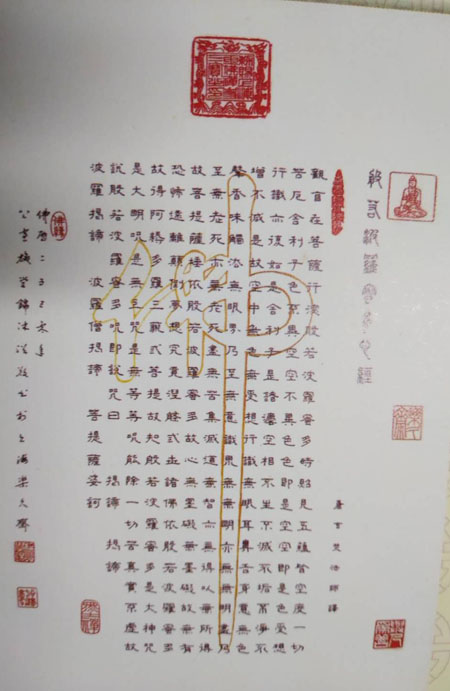 般若波羅蜜多心經
唐玄奘法師譯
觀自在菩薩行深般若波羅蜜多時照見五蘊皆空度一切
苦厄舍利子色不異空空不異色色即是空空即是色受想
行識亦復如是舍利子是諸法空相不生不滅不垢不淨不
增不減是故空中無色無受想行識無眼耳鼻舌身意無色
聲香味觸法無眼界乃至無意識界無無明亦無無明盡乃
至無老死亦無老死盡無苦集滅道無智亦無得以無所得
故菩提薩埵依般若波羅蜜多故心無罣礙無罣礙故無有
恐怖遠離顛倒夢想究竟涅槃三世諸佛依般若波羅蜜多
故得阿耨多羅三藐三菩提故知般若波羅蜜多是大神咒
是大明咒是無上咒是無等等咒能除一切苦真實不虛故
說般若波羅蜜多咒即說咒曰 揭諦 揭諦
波羅揭諦 波羅僧揭諦 菩提薩婆訶
佛歷二五三年
於上海